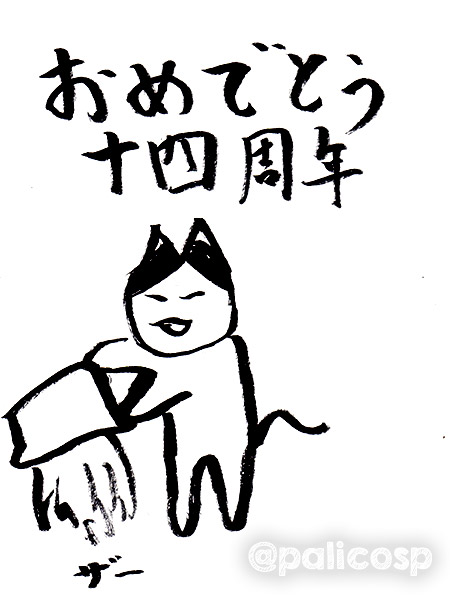 おめでとう
十四周年
ザー
@palicosp